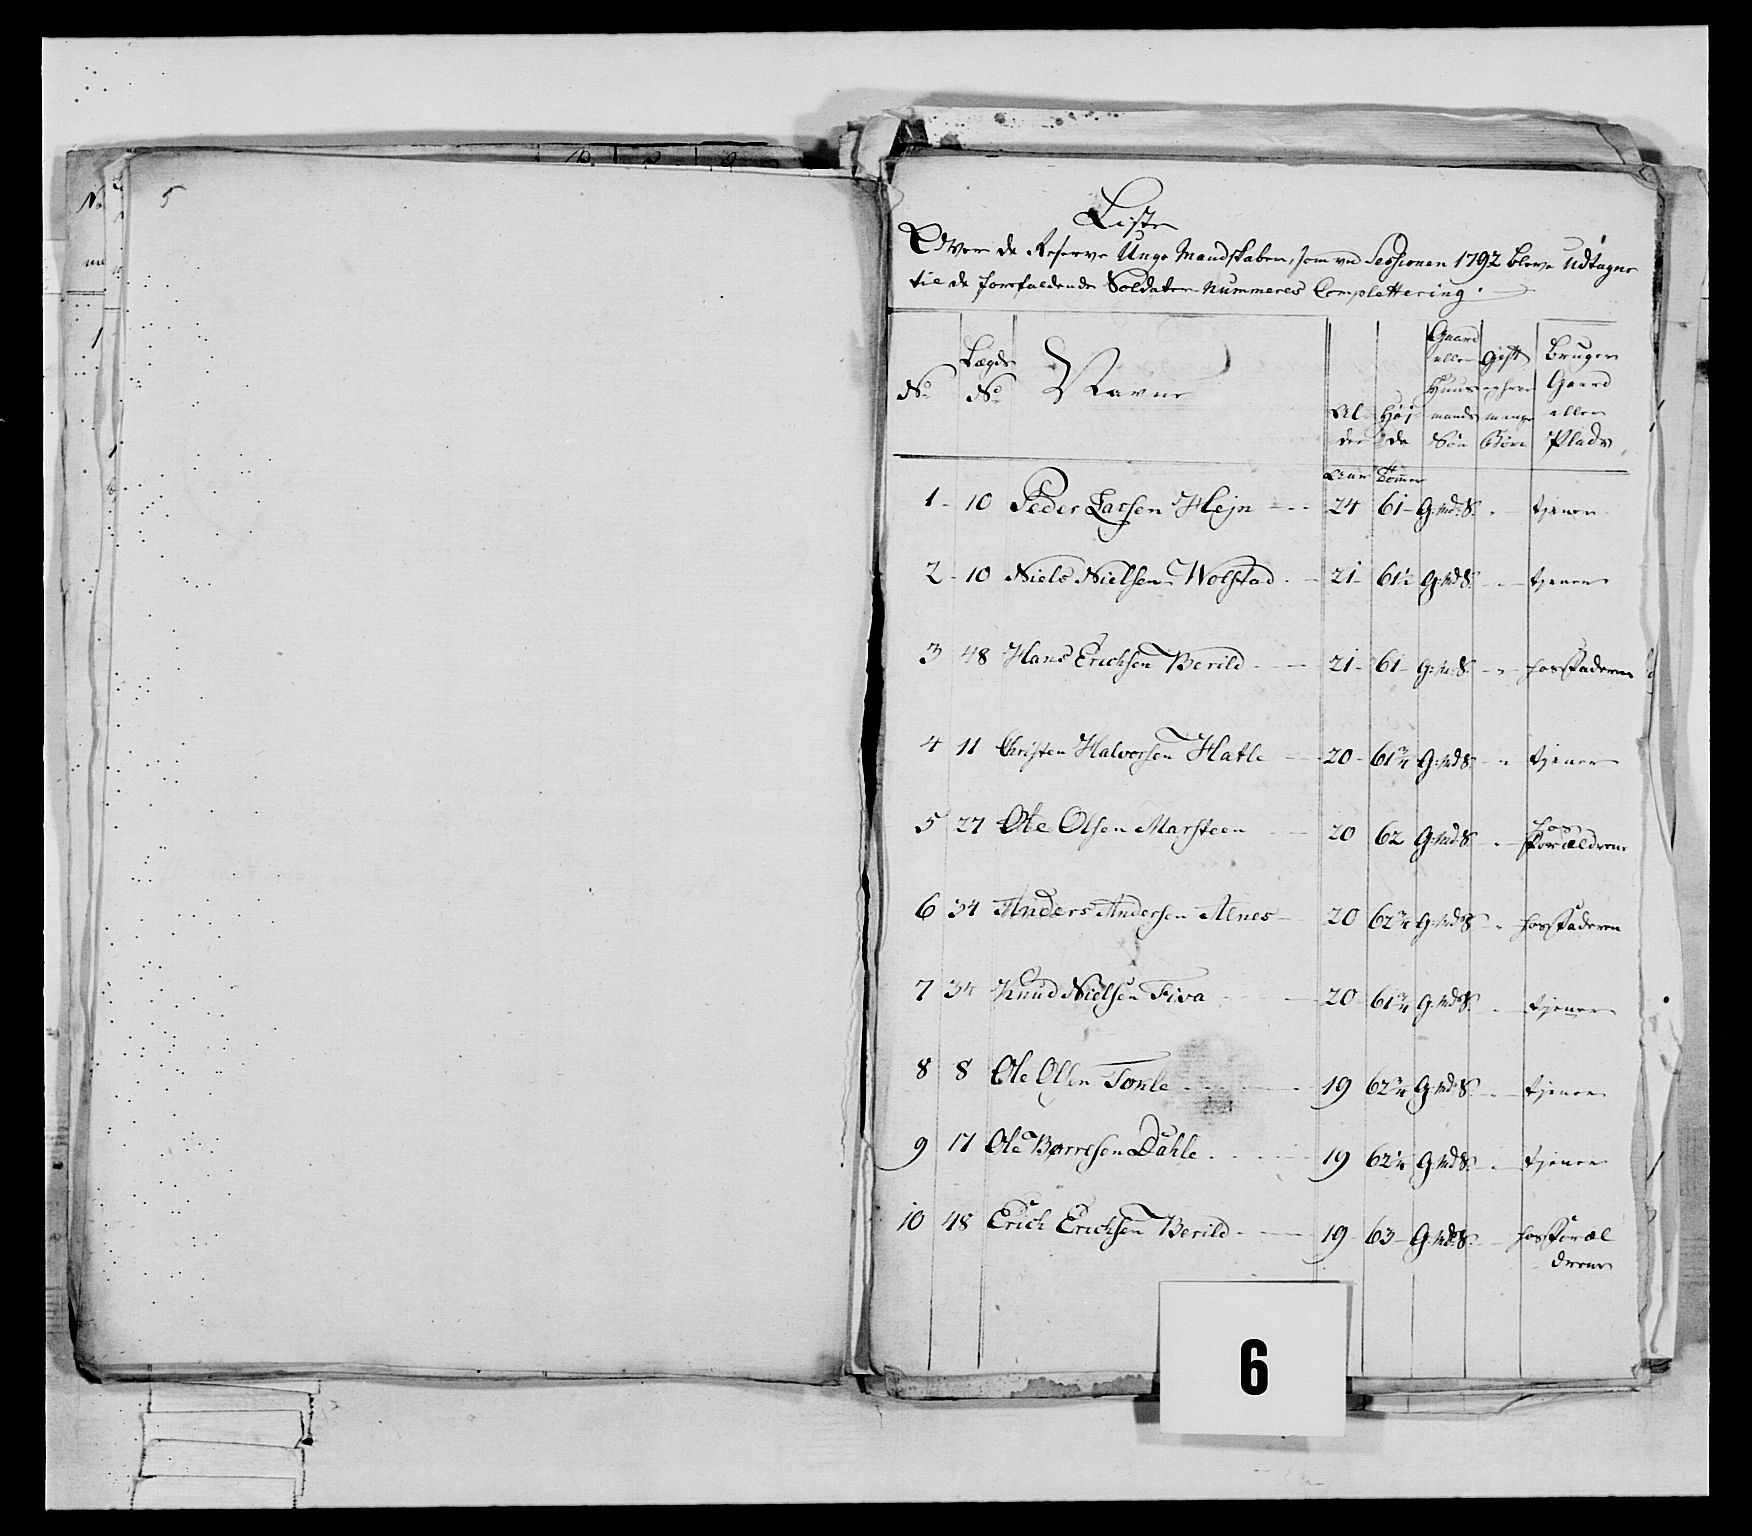 5
Liste
Over de Reserve Unge Mandskaber, som ved Sessionen 1792 bleve udtagne
til de forefaldende Soldater Nummeres Complettering.
No. Lægds No. Navne Alder Høide Gaard eller Huusmands Søn Gift og hvor mange Børn Bruger Gaard eller Plads
Aar Tommer
1 - 10 Peder Larsen Hejn - - - 24 61 - G:md:S. - tjener
2 - 10 Niels Nielsen Wolstad - 21 - 61½ G:md:S. - tjener
3 48 Hans Erichsen Berild - - 21 - 61 - G:m:S. - hos Faderen
4 11 Christen Halvorsen Hatle - - 20 - 61¾ G:md:S. - tjener
5 27 Ole Olsen Marsteen - - 20 62 G:md:S. - hos Forældrene
6 34 Anders Andersen Alnes - 20 62¾ G:md:S. - hos Faderen
7 34 Knud Nielsen Fiva - - 20 - 61¾ G:md:S. - tjener
8 8 Ole Olsen Tomle - - 19 62¾ G:md:S. - tjener
9 17 Ole Børresen Dahle - - 19 62¼ G:md:S. - tjener
10 48 Erich Erichsen Berild - - 19 63 - G:md:S. - hos Foræl
drene
6